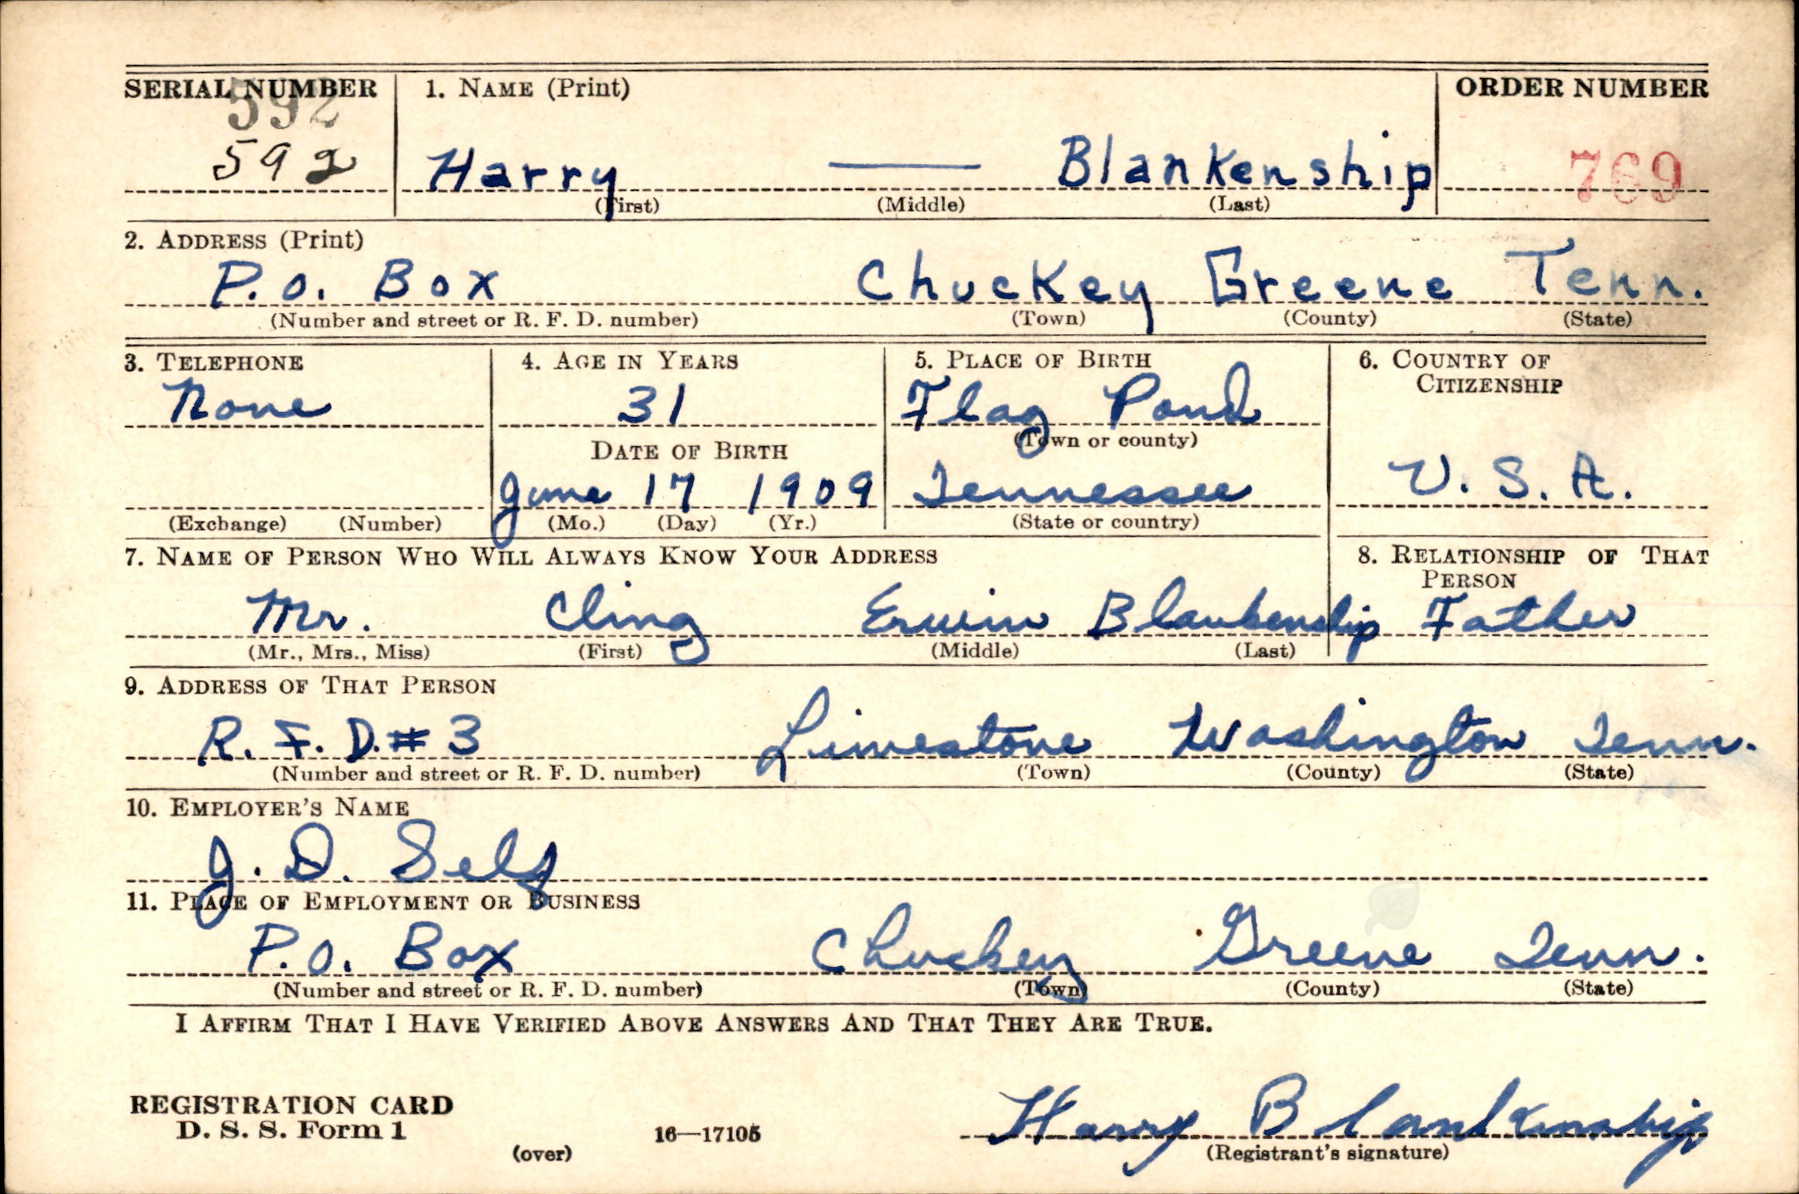 SERIAL NUMBER 1. NAME (Print) ORDER NUMBER
592
592 Harry — Blankenship 769
(First) (Middle) (Last)
2. ADDRESS (Print)
P.O. Box Chuckey Greene Tenn.
(Number and street or R. F. D. number) (Town) (County) (State)
3. TELEPHONE 4. AGE IN YEARS 5. PLACE OF BIRTH 6. COUNTRY OF CITIZENSHIP
None 31 Flag Pond
(Town or county)
DATE OF BIRTH
June 17 1909 Tennessee U.S.A.
(Exchange) (Number) (Mo.) (Day) (Yr.) (State or country)
7. NAME OF PERSON WHO WILL ALWAYS KNOW YOUR ADDRESS 8. RELATIONSHIP OF THAT PERSON
Mr. Cling Erwin Blankenship Father
(Mr., Mrs., Miss) (First) (Middle) (Last)
9. ADDRESS OF THAT PERSON
R.F.D.#3 Limestone Washington Tenn.
(Number and street or R. F. D. number) (Town) (County) (State)
10. EMPLOYER'S NAME
J.D. Self
11. PLACE OF EMPLOYMENT OR BUSINESS
P.O. Box Chuckey Greene Tenn.
(Number and street or R. F. D. number) (Town) (County) (State)
I AFFIRM THAT I HAVE VERIFIED ABOVE ANSWERS AND THAT THEY ARE TRUE.
REGISTRATION CARD
D. S. S. Form 1 Harry Blankenship
(over) 16—17105 (Registrant's signature)